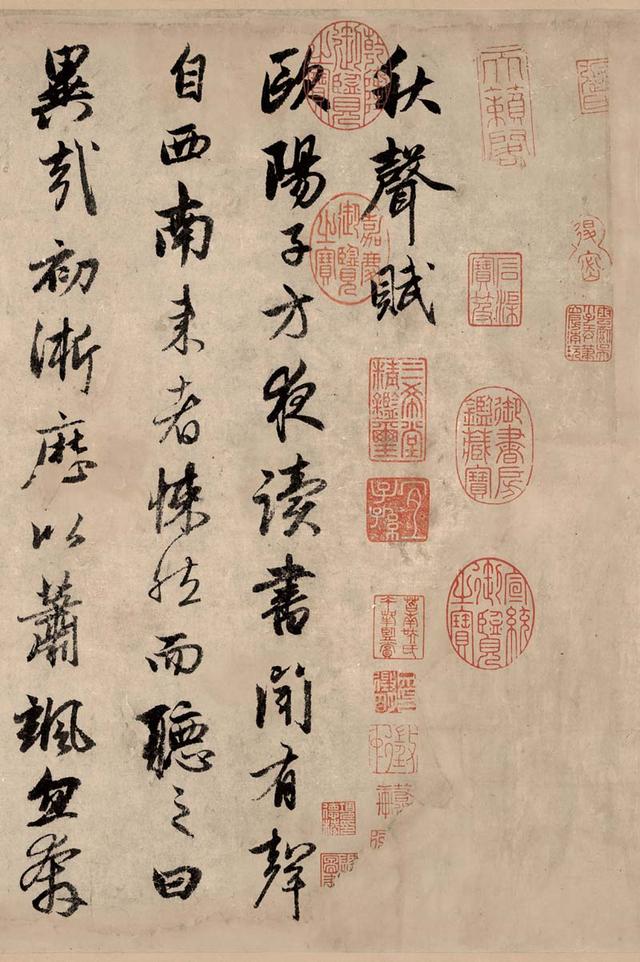 天籟閣
石渠寶笈
御書房鑑藏寶
宣統御覽之寶
乾隆御覽之寶
嘉慶御覽之寶
三希堂精鑑璽
宜子孫
秋聲賦
歐陽子方夜讀書聞有聲
自西南來者悚然而聽之曰
異哉初淅歷以蕭颯忽奔